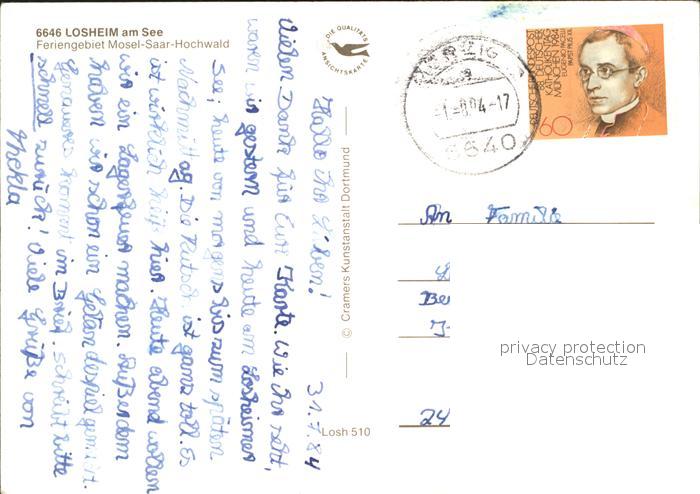 6646 LOSHEIM am See
Feriengebiet Mosel-Saar-Hochwald
DIE QUALITÄTS
ANSICHTSKARTE
MERZIG
-1.-8.84-17
6640
DEUTSCHE BUNDESPOST
88. DEUTSCHER
KATHOLIKENTAG
MÜNCHEN 1984
EUGENIO PACELLI
PAPST PIUS XII.
60
31.7.84
Hallo Ihr Lieben!
Vielen Dank für Eure Karte. Wie Ihr seht,
waren wir gestern und heute am Losheimer
See; heute von morgens bis zum späten
Nachmittag. Die Rutsch. ist ganz toll. Es
ist wirklich hier. Heute abend wollen
wir ein Lagerfeuer machen. Außerdem
haben wir schon ein gemacht.
Genaueres kommt im Brief. Schreibt bitte
schnell zurück! Viele Grüße von
Thekla
© Cramers Kunstanstalt Dortmund
Losh 510
An Familie
Be
24
privacy protection
Datenschutz